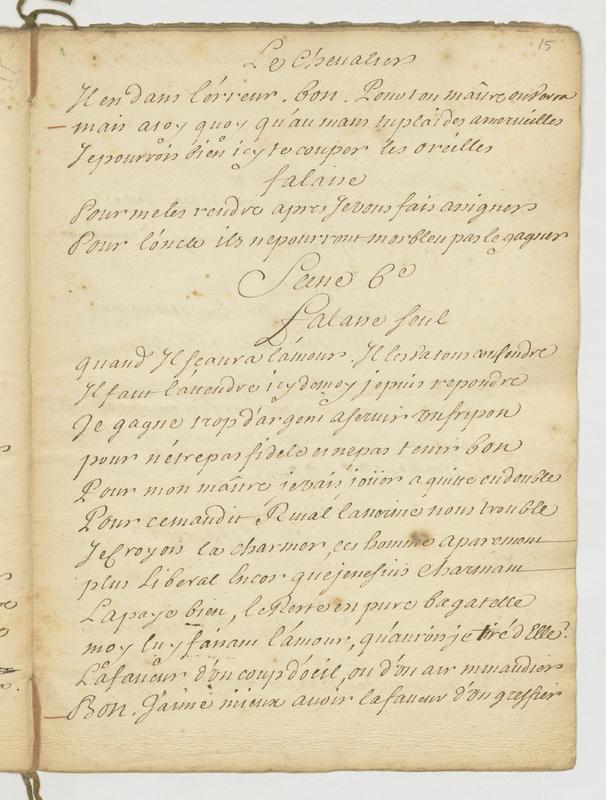 15
Le Chevalier
Il en dans l'érreur. bon. Pour ton maître
mais a toy quoy qu'au mans tu plaides a merveilles
Je pourrois bien icy te couper les oreilles
falaise
Pour me les rendre apres Je vous fais assigner
Pour l'oncle ils ne pourront morbleu pas le gagner
Scene 6e
falaise seul
quand Il sçaura l'amour. Il les va tous confondre
Il faut l'attendre icy de moy je puis repondre
Je gagne trop d'argent a servir un fripon
pour n'étre pas fidele et ne pas tenir bon
Pour mon maître je vais joüer a quitte ou double
Pour ce maudit Rival la nous trouble
Je croyois la charmer, cet homme aparemment
plus Liberal Encor que je ne suis Charmant
La paye bien, le Reste en pure bagatelle
moy luy faisant l'amour, qu'aurois je tiré d'Elle?
La faveur d'un coup d'oeil, ou d'un air minaudier
Bon. J'aime mieux avoir la faveur d'un greffier